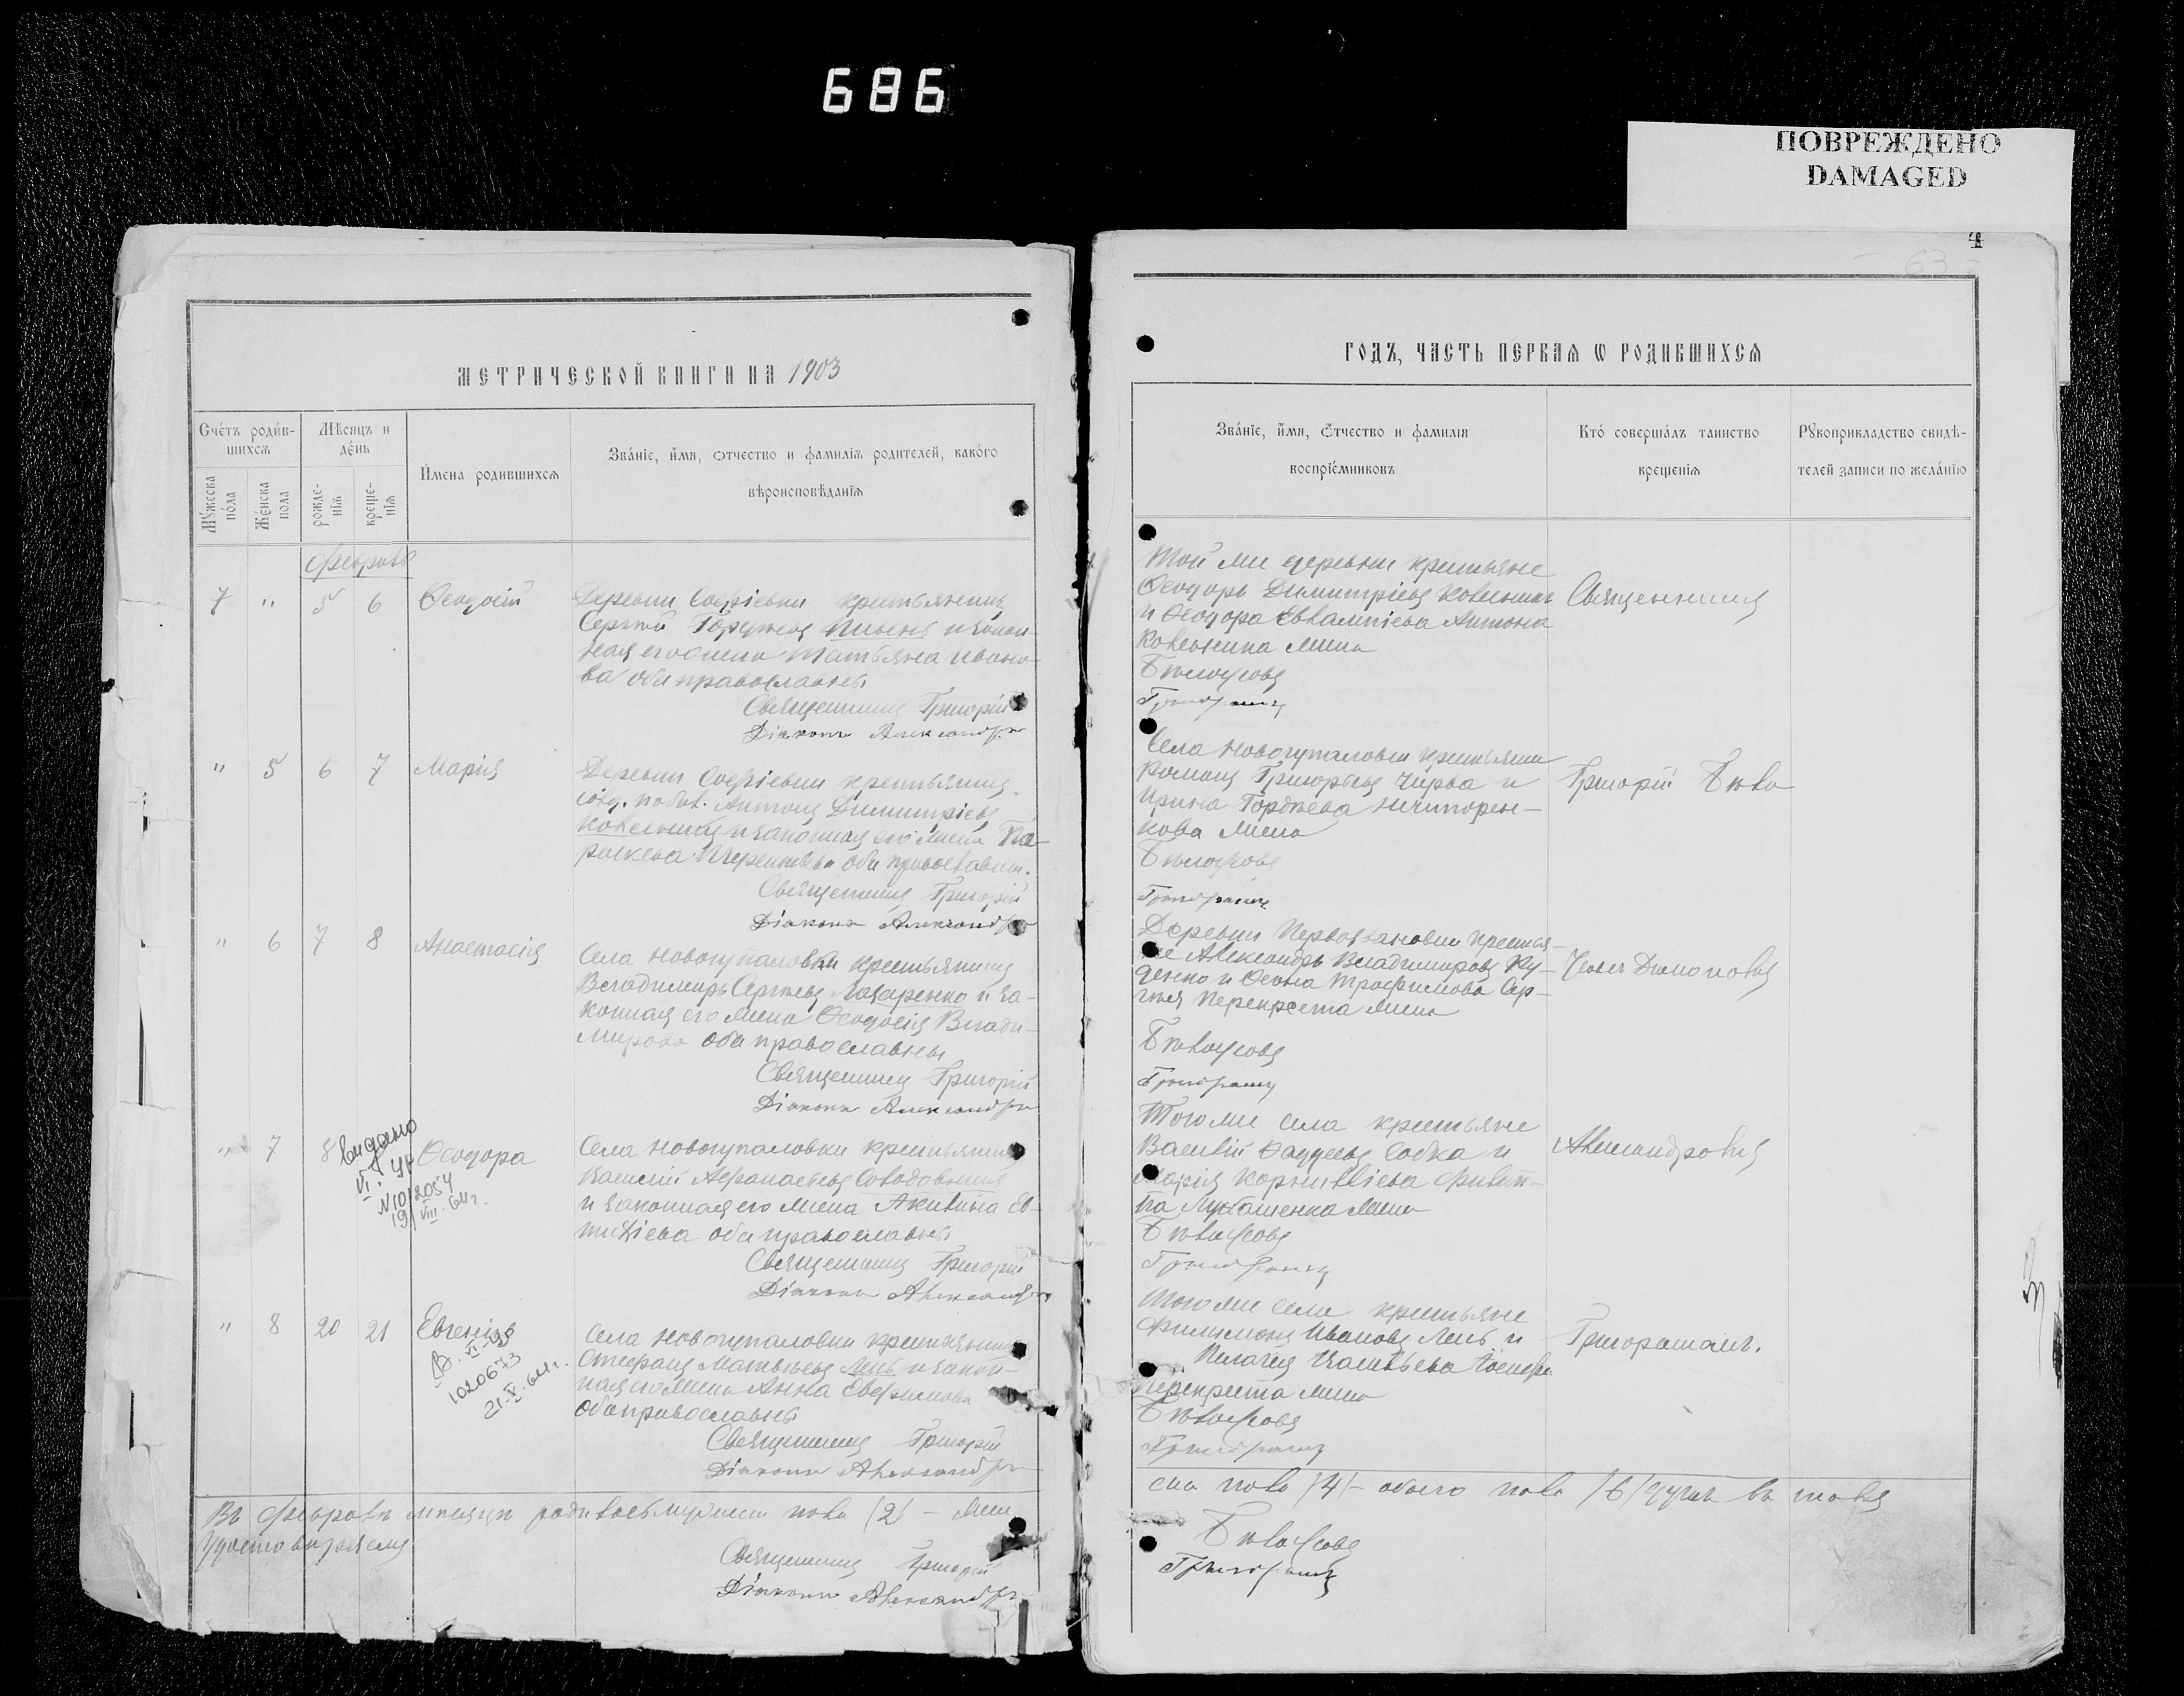 686
ПОВРЕЖДЕНО
DAMAGED
4
63
МЕТРИЧЕСКОЙ КНИГИ НА 1903
Счéтъ роди́в-
шихсѧ
Мѣ́сѧцъ и
дéнь
Мꙋ́жеска
пóла
Жéнска
пола
рожде-
нїѧ
креще-
нїѧ
И҆мена родившихсѧ
Зва́нїе, и҆́мѧ, ѻтчество и фамилїѧ родителей, како́го
вѣроисповѣ́данїѧ
Февраль
7 " 5 6 Ѳеодосій
Деревни Софіевки крестьянинъ
Сергѣй Гордѣевъ Пивень и закон-
ная его жена Татьяна Ивано-
ва оба православны
Священникъ Григорій
Діаконъ Александръ
" 5 6 7 Марія
Деревни Софіевки крестьянинъ
Антонъ Димитріевъ
и законная его жена Па-
раскева оба православны.
Священникъ Григорій
Діаконъ Александръ
" 6 7 8 Анастасія
Села Новогупаловки крестьянинъ
Владимиръ Сергѣевъ Лазаренко и за-
конная его жена Ѳеодосія Влади-
мирова оба православны
Священникъ Григорій
Діаконъ Александръ
" 7 8 Ѳеодора
видано
VI. УР
N 1012054
19/VIII. 64 г.
Села Новогупаловки крестьянинъ
Василій Афанасьевъ
и законная его жена Акилина Ев-
тихіева оба православны
Священникъ Григорій
Діаконъ Александръ
" 8 20 21 Евгенія
В. VI-УР
1020673
21.V.64 г.
Села Новогупаловки крестьянинъ
Стефанъ Матвѣевъ Лень и закон-
ная его жена Анна Евфимова
оба православны
Священникъ Григорій
Діаконъ Александръ
Въ Февралѣ мѣсяцѣ родилось мужеска пола /2/ – жен
Удостовѣряемъ
Священникъ Григорій
Діаконъ Александръ
ГОДЪ, ЧАСТЬ ПЕРВАѦ Ѡ РОДИВШИХСѦ
Зва́нїе, и҆́мѧ, ѻ҆́тчество и фамилїѧ
воспрїе́мниковъ
Ктó соверша́лъ таинство
крещенїѧ
Рꙋкоприкладство свидѣ-
телей записи по жела́нїю
Той же деревни крестьяне
Ѳеодоръ Димитріевъ
и Ѳеодора Евлампіева Антона
жена
Бѣлоусовъ
Григорашъ
Священникъ
Села Новогупаловки крестьяне
Романъ Григорьевъ Чирва и
Ирина Гордѣева Ничипорен-
кова жена
Бѣлоусовъ
Григорашъ
Григорій Бѣло
Деревни Первозвановки крестья-
не Александръ Владимировъ Ку-
ценко и Ѳеона Трофимова Сер-
гѣя Перекреста жена
Бѣлоусовъ
Григорашъ
Того же села крестьяне
Василій Ѳаддеевъ Собка и
Марія Корниліева Филип-
па жена
Бѣлоусовъ
Григорашъ
Александровъ
Того же села крестьяне
Филимонъ Ивановъ Лень и
Пелагія Іосифа
Перекреста жена
Бѣлоусовъ
Григорашъ
Григорашъ.
ска пола /4/ – обоего пола /6/ душъ
Бѣлоусовъ
Григорашъ